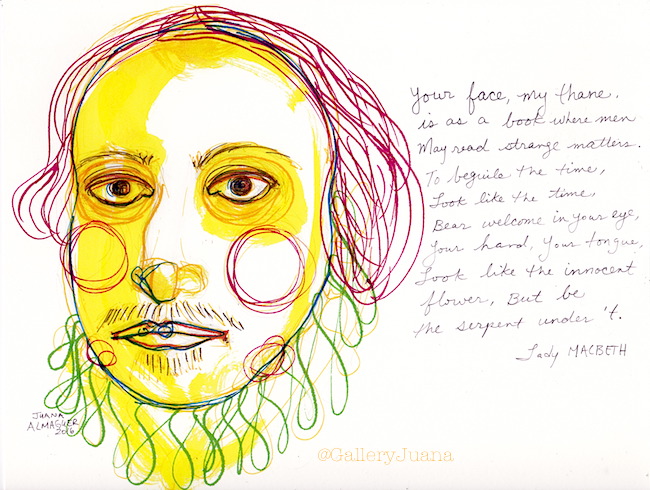 Your face, my thane,
is as a book where men
May read strange matters.
To beguile the time,
Look like the time,
Bear welcome in your eye,
Your hand, Your tongue,
Look like the innocent
flower, But be
the serpent under 't.
Lady MACBETH
JUANA
ALMAGUER
2016
@GalleryJuana